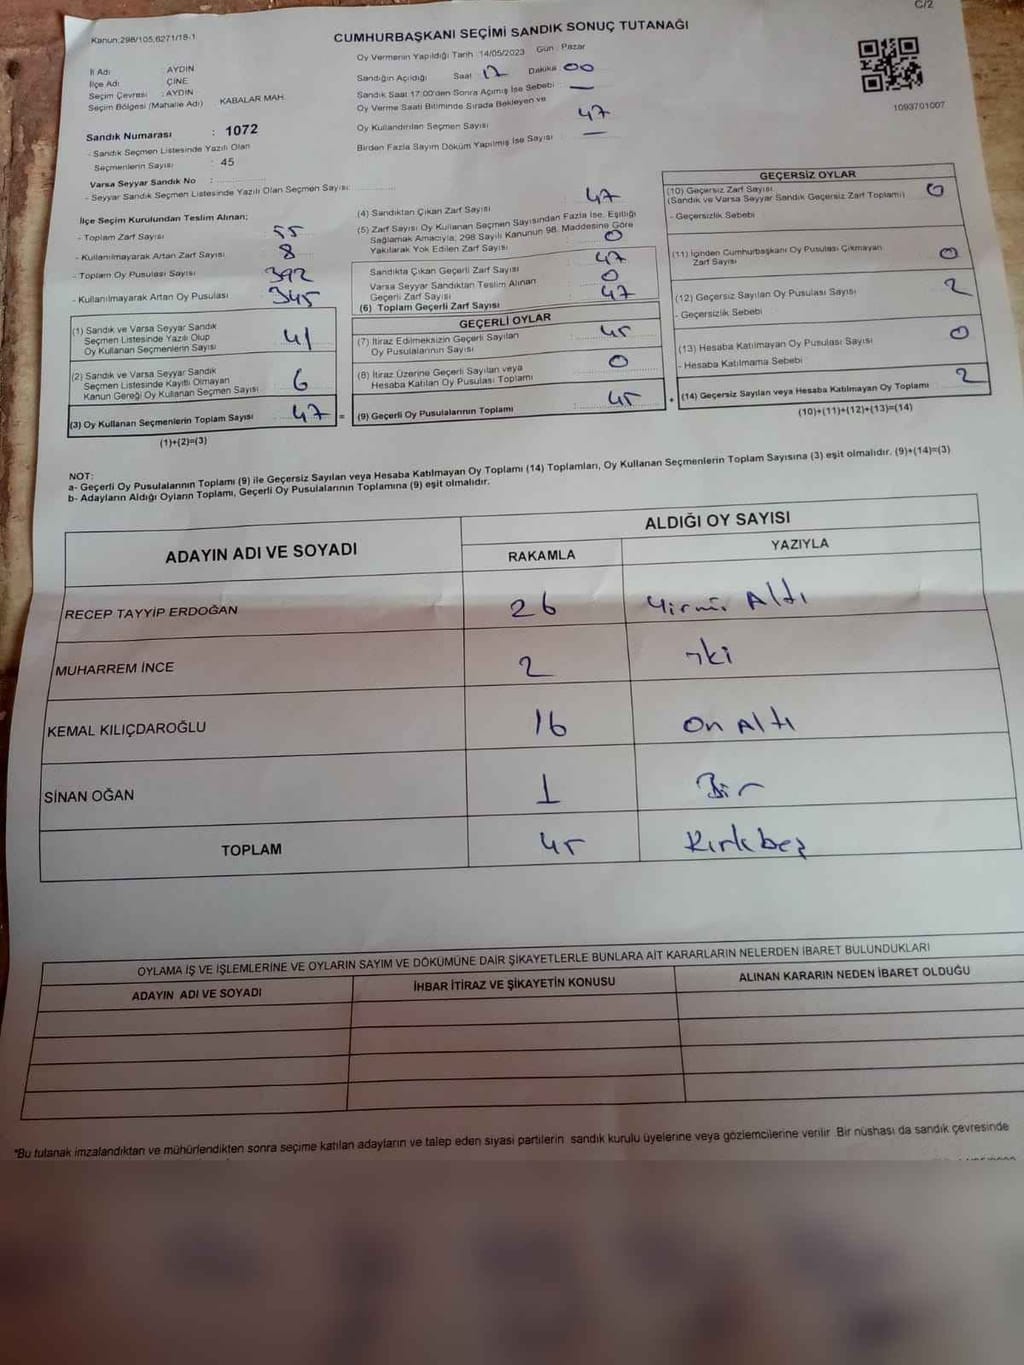 C/2
Kanun,298/105,6271/18-1
CUMHURBAŞKANI SEÇİMİ SANDIK SONUÇ TUTANAĞI
İl Adı : AYDIN
İlçe Adı : ÇİNE
Seçim Çevresi : AYDIN
Seçim Bölgesi (Mahalle Adı) KABALAR MAH.
Sandık Numarası : 1072
- Sandık Seçmen Listesinde Yazılı Olan
Seçmenlerin Sayısı : 45
Varsa Seyyar Sandık No :
- Seyyar Sandık Seçmen Listesinde Yazılı Olan Seçmen Sayısı:
Oy Vermenin Yapıldığı Tarih : 14/05/2023 Gün : Pazar
Sandığın Açıldığı Saat 17 Dakika 00
Sandık Saat 17:00'den Sonra Açımış İse Sebebi : —
Oy Verme Saati Bitiminde Sırada Bekleyen ve
Oy Kullandırılan Seçmen Sayısı 47
Birden Fazla Sayım Döküm Yapılmış İse Sayısı —
1093701007
İlçe Seçim Kurulundan Teslim Alınan;
- Toplam Zarf Sayısı 55
- Kullanılmayarak Artan Zarf Sayısı 8
- Toplam Oy Pusulası Sayısı 392
- Kullanılmayarak Artan Oy Pusulası 345
(1) Sandık ve Varsa Seyyar Sandık
Seçmen Listesinde Yazılı Olup
Oy Kullanan Seçmenlerin Sayısı 41
(2) Sandık ve Varsa Seyyar Sandık
Seçmen Listesinde Kayıtlı Olmayan
Kanun Gereği Oy Kullanan Seçmen Sayısı 6
(3) Oy Kullanan Seçmenlerin Toplam Sayısı 47 =
(1)+(2)=(3)
(4) Sandıktan Çıkan Zarf Sayısı 47
(5) Zarf Sayısı Oy Kullanan Seçmen Sayısından Fazla İse, Eşitliği
Sağlamak Amacıyla; 298 Sayılı Kanunun 98. Maddesine Göre
Yakılarak Yok Edilen Zarf Sayısı 0
Sandıkta Çıkan Geçerli Zarf Sayısı 47
Varsa Seyyar Sandıktan Teslim Alınan
Geçerli Zarf Sayısı 0
(6) Toplam Geçerli Zarf Sayısı 47
GEÇERLİ OYLAR
(7) İtiraz Edilmeksizin Geçerli Sayılan
Oy Pusulalarının Sayısı 45
(8) İtiraz Üzerine Geçerli Sayılan veya
Hesaba Katılan Oy Pusulası Toplamı 0
(9) Geçerli Oy Pusulalarının Toplamı 45 +
GEÇERSİZ OYLAR
(10) Geçersiz Zarf Sayısı
(Sandık ve Varsa Seyyar Sandık Geçersiz Zarf Toplamı) 0
- Geçersizlik Sebebi
(11) İçinden Cumhurbaşkanı Oy Pusulası Çıkmayan
Zarf Sayısı 0
(12) Geçersiz Sayılan Oy Pusulası Sayısı 2
- Geçersizlik Sebebi
(13) Hesaba Katılmayan Oy Pusulası Sayısı 0
- Hesaba Katılmama Sebebi
(14) Geçersiz Sayılan veya Hesaba Katılmayan Oy Toplamı 2
(10)+(11)+(12)+(13)=(14)
NOT:
a- Geçerli Oy Pusulalarının Toplamı (9) ile Geçersiz Sayılan veya Hesaba Katılmayan Oy Toplamı (14) Toplamları, Oy Kullanan Seçmenlerin Toplam Sayısına (3) eşit olmalıdır. (9)+(14)=(3)
b- Adayların Aldığı Oyların Toplamı, Geçerli Oy Pusulalarının Toplamına (9) eşit olmalıdır.
ADAYIN ADI VE SOYADI
ALDIĞI OY SAYISI
RAKAMLA YAZIYLA
RECEP TAYYİP ERDOĞAN 26 Yirmi Altı
MUHARREM İNCE 2 iki
KEMAL KILIÇDAROĞLU 16 On Altı
SİNAN OĞAN 1 Bir
TOPLAM 45 Kırkbeş
OYLAMA İŞ VE İŞLEMLERİNE VE OYLARIN SAYIM VE DÖKÜMÜNE DAİR ŞİKAYETLERLE BUNLARA AİT KARARLARIN NELERDEN İBARET BULUNDUKLARI
ADAYIN ADI VE SOYADI İHBAR İTİRAZ VE ŞİKAYETİN KONUSU ALINAN KARARIN NEDEN İBARET OLDUĞU
*Bu tutanak imzalandıktan ve mühürlendikten sonra seçime katılan adayların ve talep eden siyasi partilerin sandık kurulu üyelerine veya gözlemcilerine verilir. Bir nüshası da sandık çevresinde